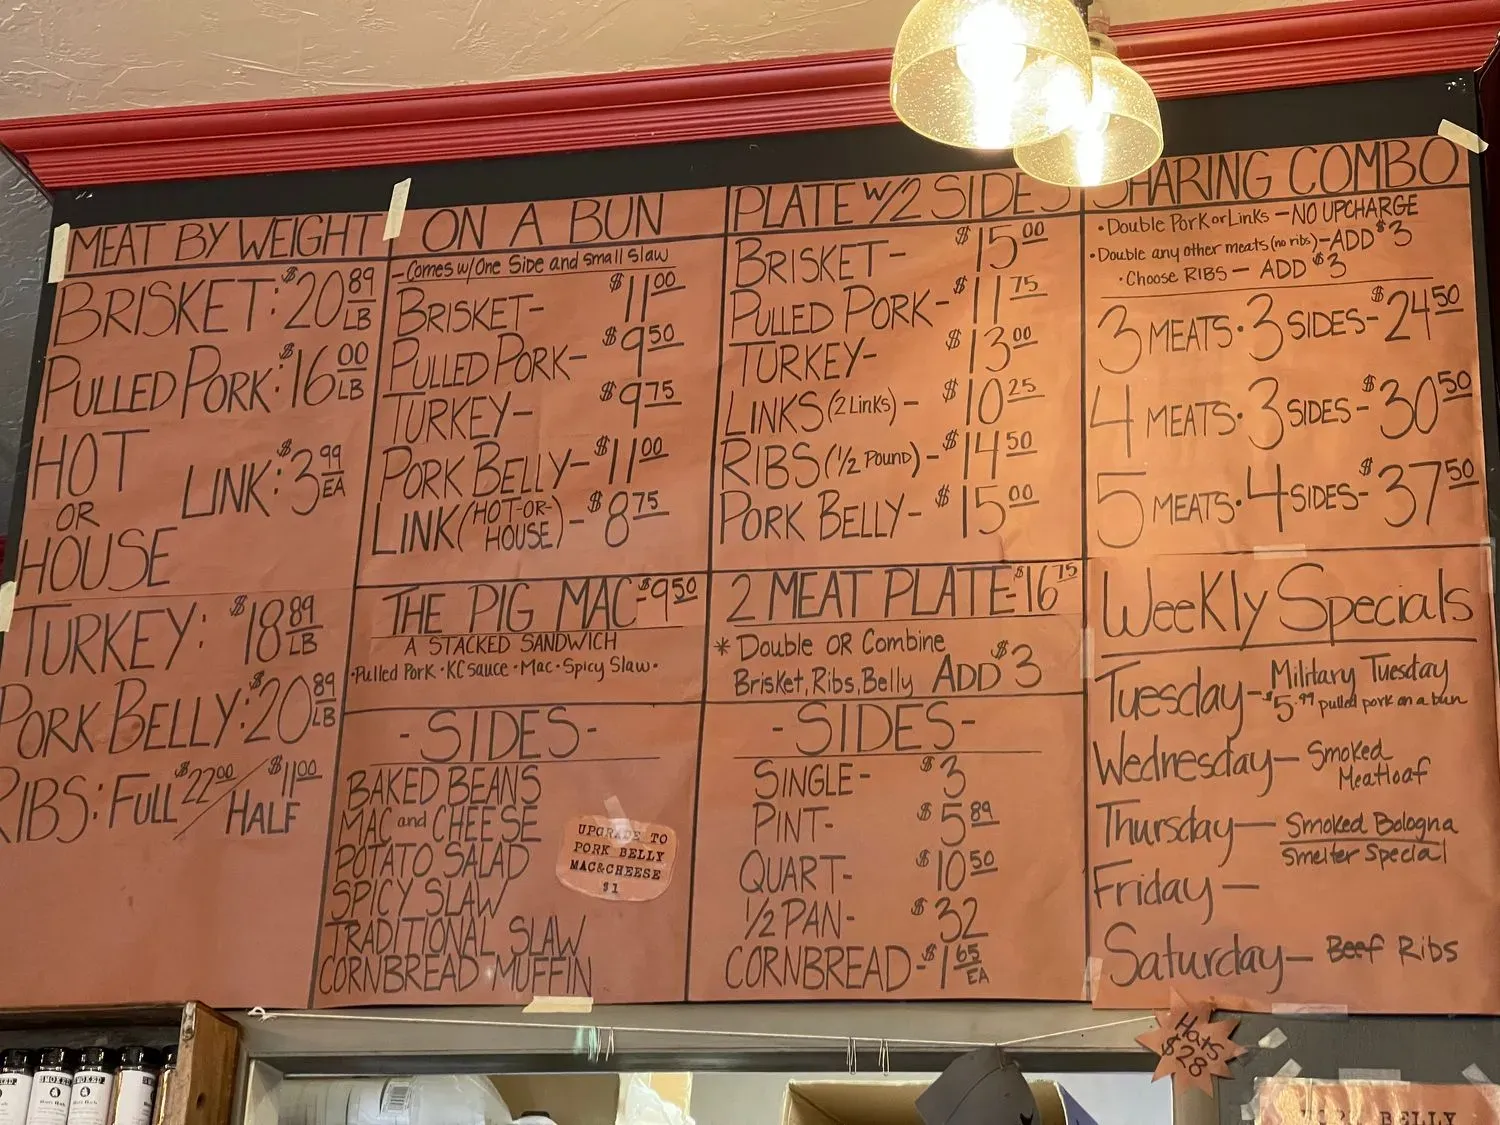 MEAT BY WEIGHT
BRISKET: $20 89 LB
PULLED PORK: $16 00 LB
HOT
OR
HOUSE
LINK: $3 99 EA
TURKEY: $18 89 LB
PORK BELLY: $20 89 LB
RIBS: FULL $22 00 / $11 00 HALF
ON A BUN
- Comes w/One Side and Small Slaw
BRISKET- $11 00
PULLED PORK- $9 50
TURKEY- $9 75
PORK BELLY- $11 00
LINK (HOT-OR-HOUSE) - $8 75
THE PIG MAC- $9 50
A STACKED SANDWICH
• Pulled Pork • KC Sauce • Mac • Spicy Slaw •
- SIDES -
BAKED BEANS
MAC and CHEESE
POTATO SALAD
SPICY SLAW
TRADITIONAL SLAW
CORNBREAD MUFFIN
UPGRADE TO
PORK BELLY
MAC&CHEESE
$1
PLATE W/2 SIDES
BRISKET- $15 00
PULLED PORK- $11 75
TURKEY- $13 00
LINKS (2 Links) - $10 25
RIBS (1/2 POUND) - $14 50
PORK BELLY- $15 00
2 MEAT PLATE- $16 75
* Double OR Combine
Brisket, Ribs, Belly ADD $3
- SIDES -
SINGLE- $3
PINT- $5 89
QUART- $10 50
1/2 PAN- $32
CORNBREAD- $1 65 EA
SHARING COMBO
• Double Pork or Links - NO UPCHARGE
• Double any other meats (no ribs) - ADD $3
• Choose RIBS - ADD $3
3 MEATS • 3 SIDES - $24 50
4 MEATS • 3 SIDES - $30 50
5 MEATS • 4 SIDES - $37 50
Weekly Specials
Tuesday - Military Tuesday
$5.99 pulled pork on a bun
Wednesday - Smoked
Meatloaf
Thursday - Smoked Bologna
Smelter Special
Friday -
Saturday - Beef Ribs
Hats
$28
SMOKED
PORK BELLY